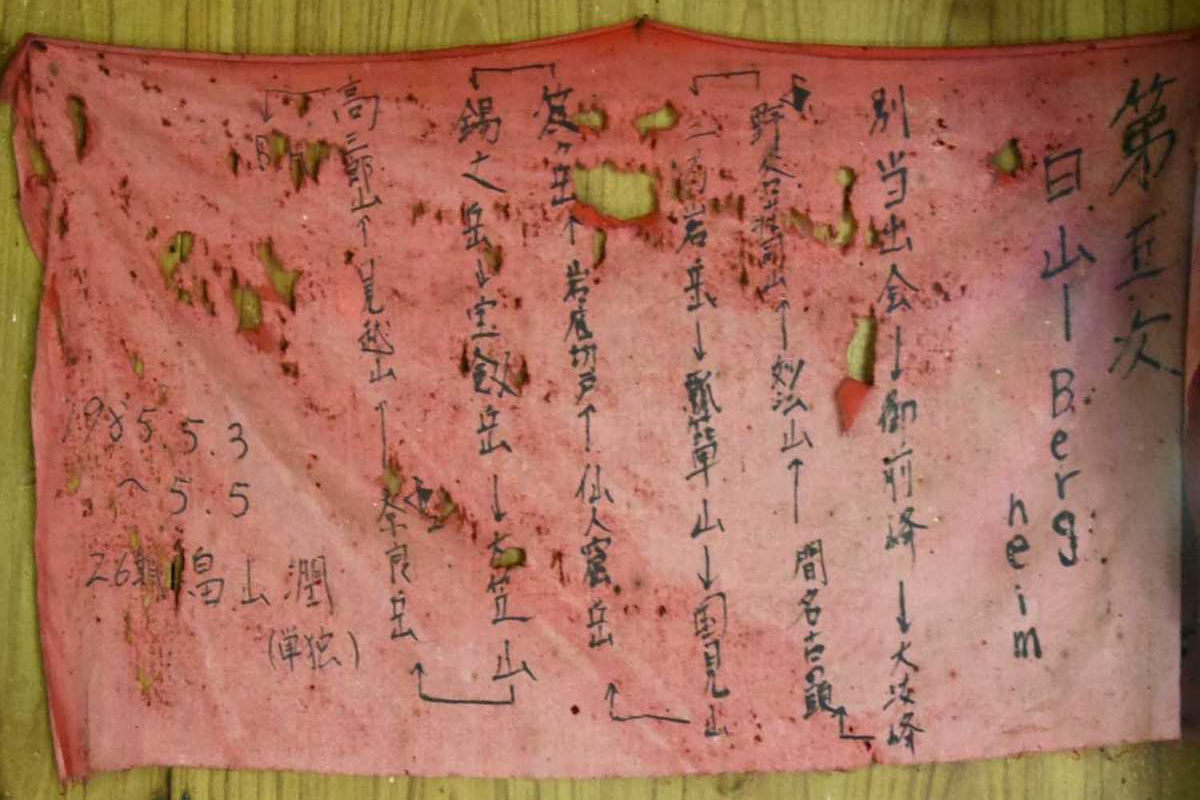 第五次
白山ーBerg
heim
別当出会↓御前峰↓大汝峰
野谷荘司山↑妙法山↑間名古の頭
三方岩岳↓瓢箪山↓国見山
笈ヶ岳↑岩底切戸↑仙人窟岳
錫丈岳↓宝剱岳↓大笠山
高三郎山↑見越山↑奈良岳
BH
1985.5.3
〜5.5
26期 畠山潤
(単独)